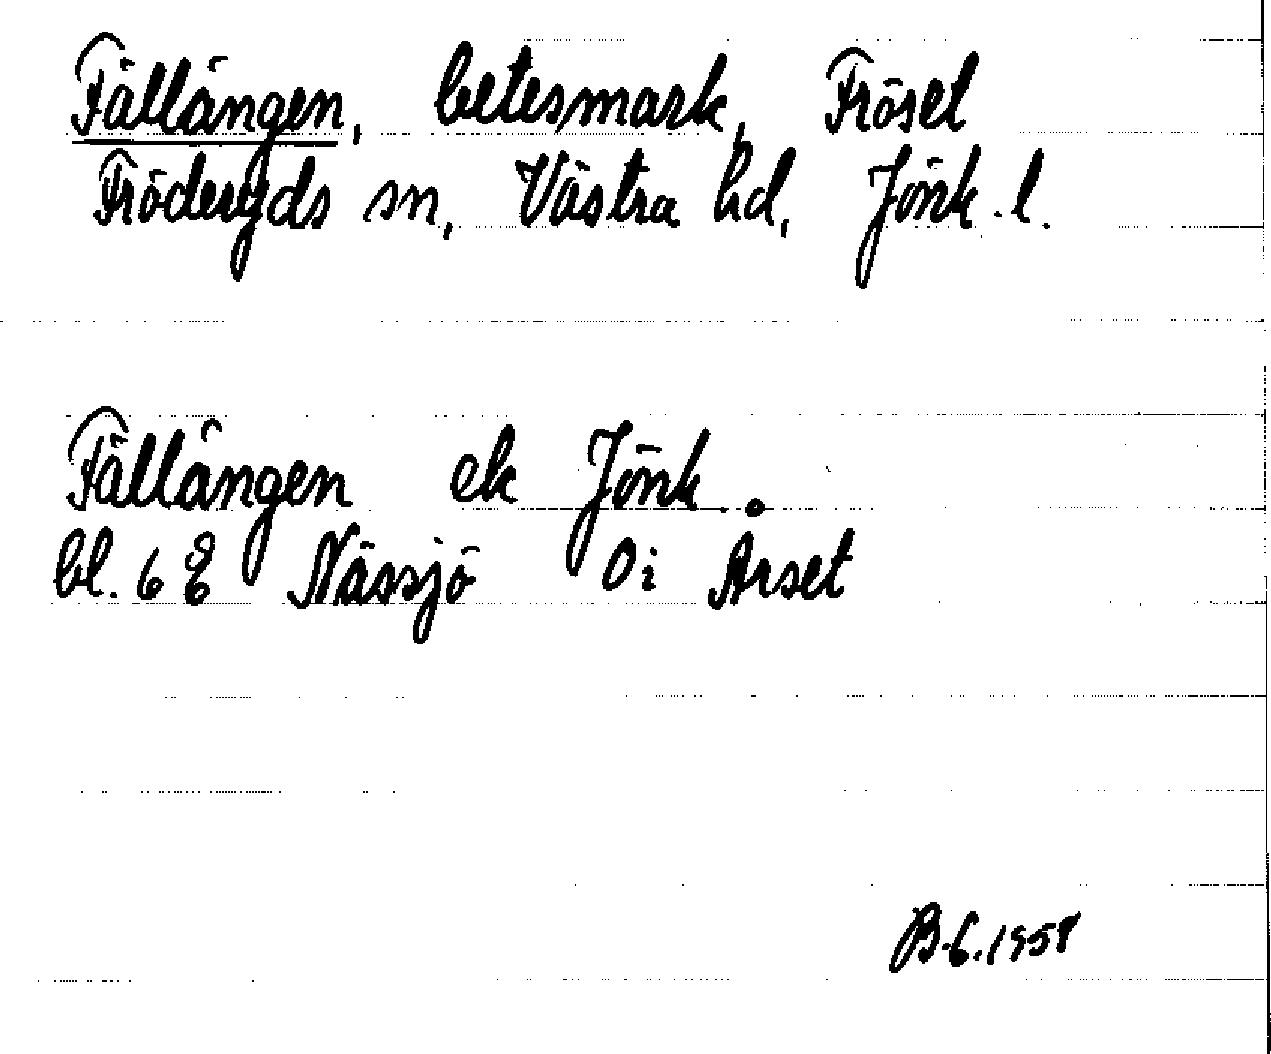 Fällängen, betesmark, Fröset
Fröderyds sn, Västra hd, Jönk. l.
Fällängen ek Jönk.
bl. 6 E Nässjö Oi Årset
B.G. 1958